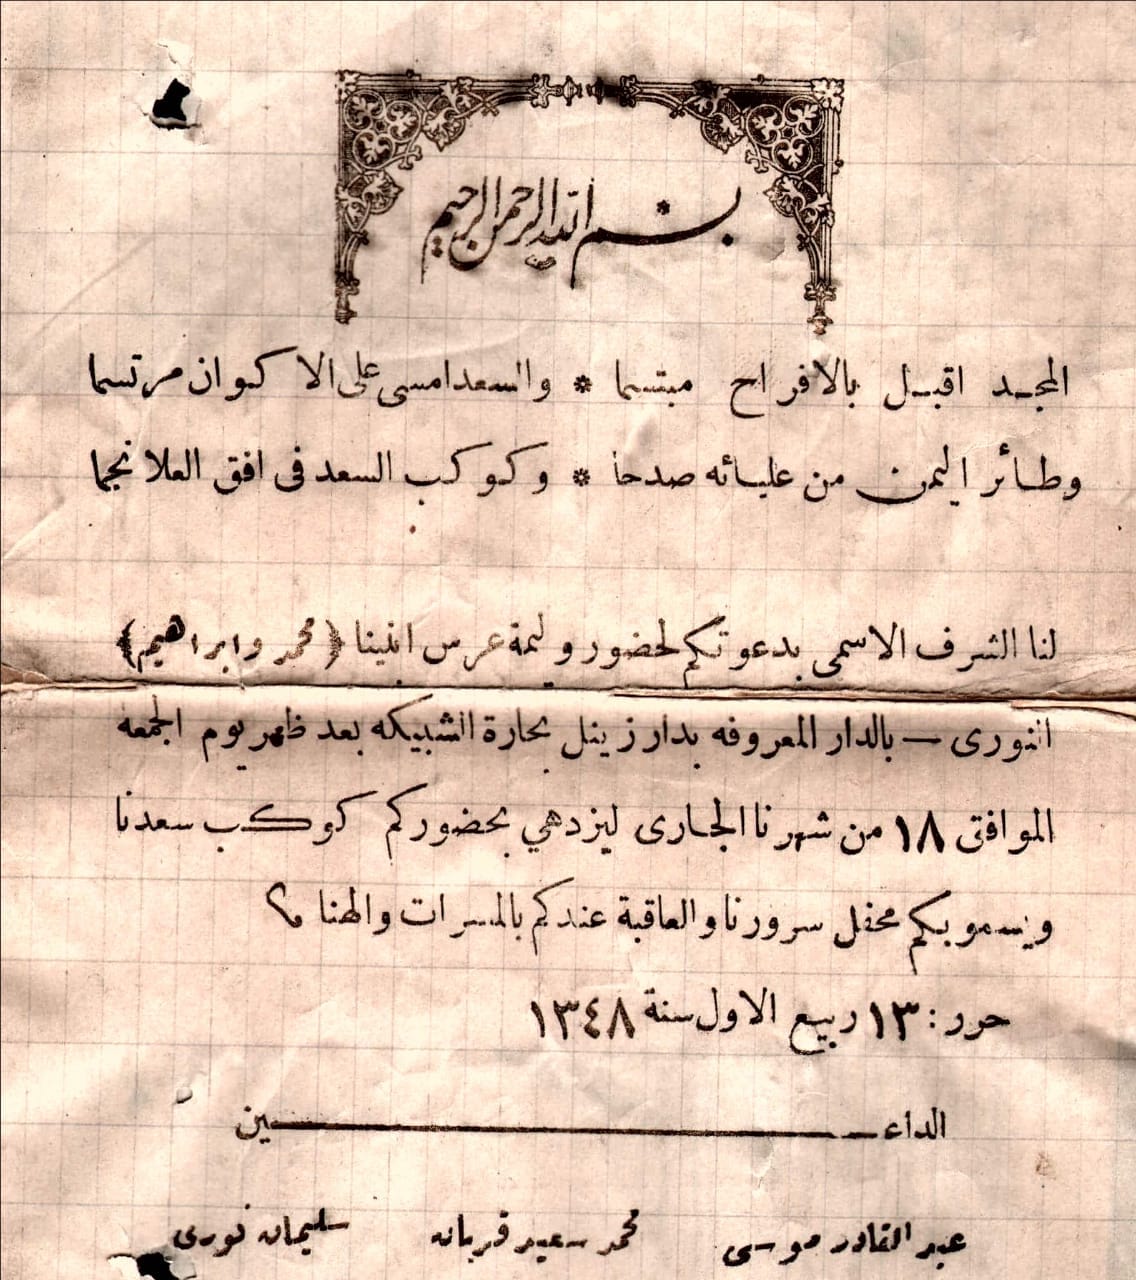 بسم الله الرحمن الرحيم
المجد اقبل بالافراح مبتسما * والسعد امسى على الاكوان مرتسما
وطائر اليمن من عليائه صدحا * وكوكب السعد فى افق العلا نجما
لنا الشرف الاسمى بدعوتكم لحضور وليمة عرس ابنينا ﴿محمد وابراهيم﴾
النورى — بالدار المعروفه بدار زينل بحارة الشبيكه بعد ظهر يوم الجمعه
الموافق ١٨ من شهرنا الجارى ليزدهي بحضوركم كوكب سعدنا
ويسمو بكم محفل سرورنا والعاقبة عندكم بالمسرات والهنا
حرر : ١٣ ربيع الاول سنة ١٣٤٨
الداعـــين
عبد القادر موسى محمد سعيد قربانه سليمان نورى